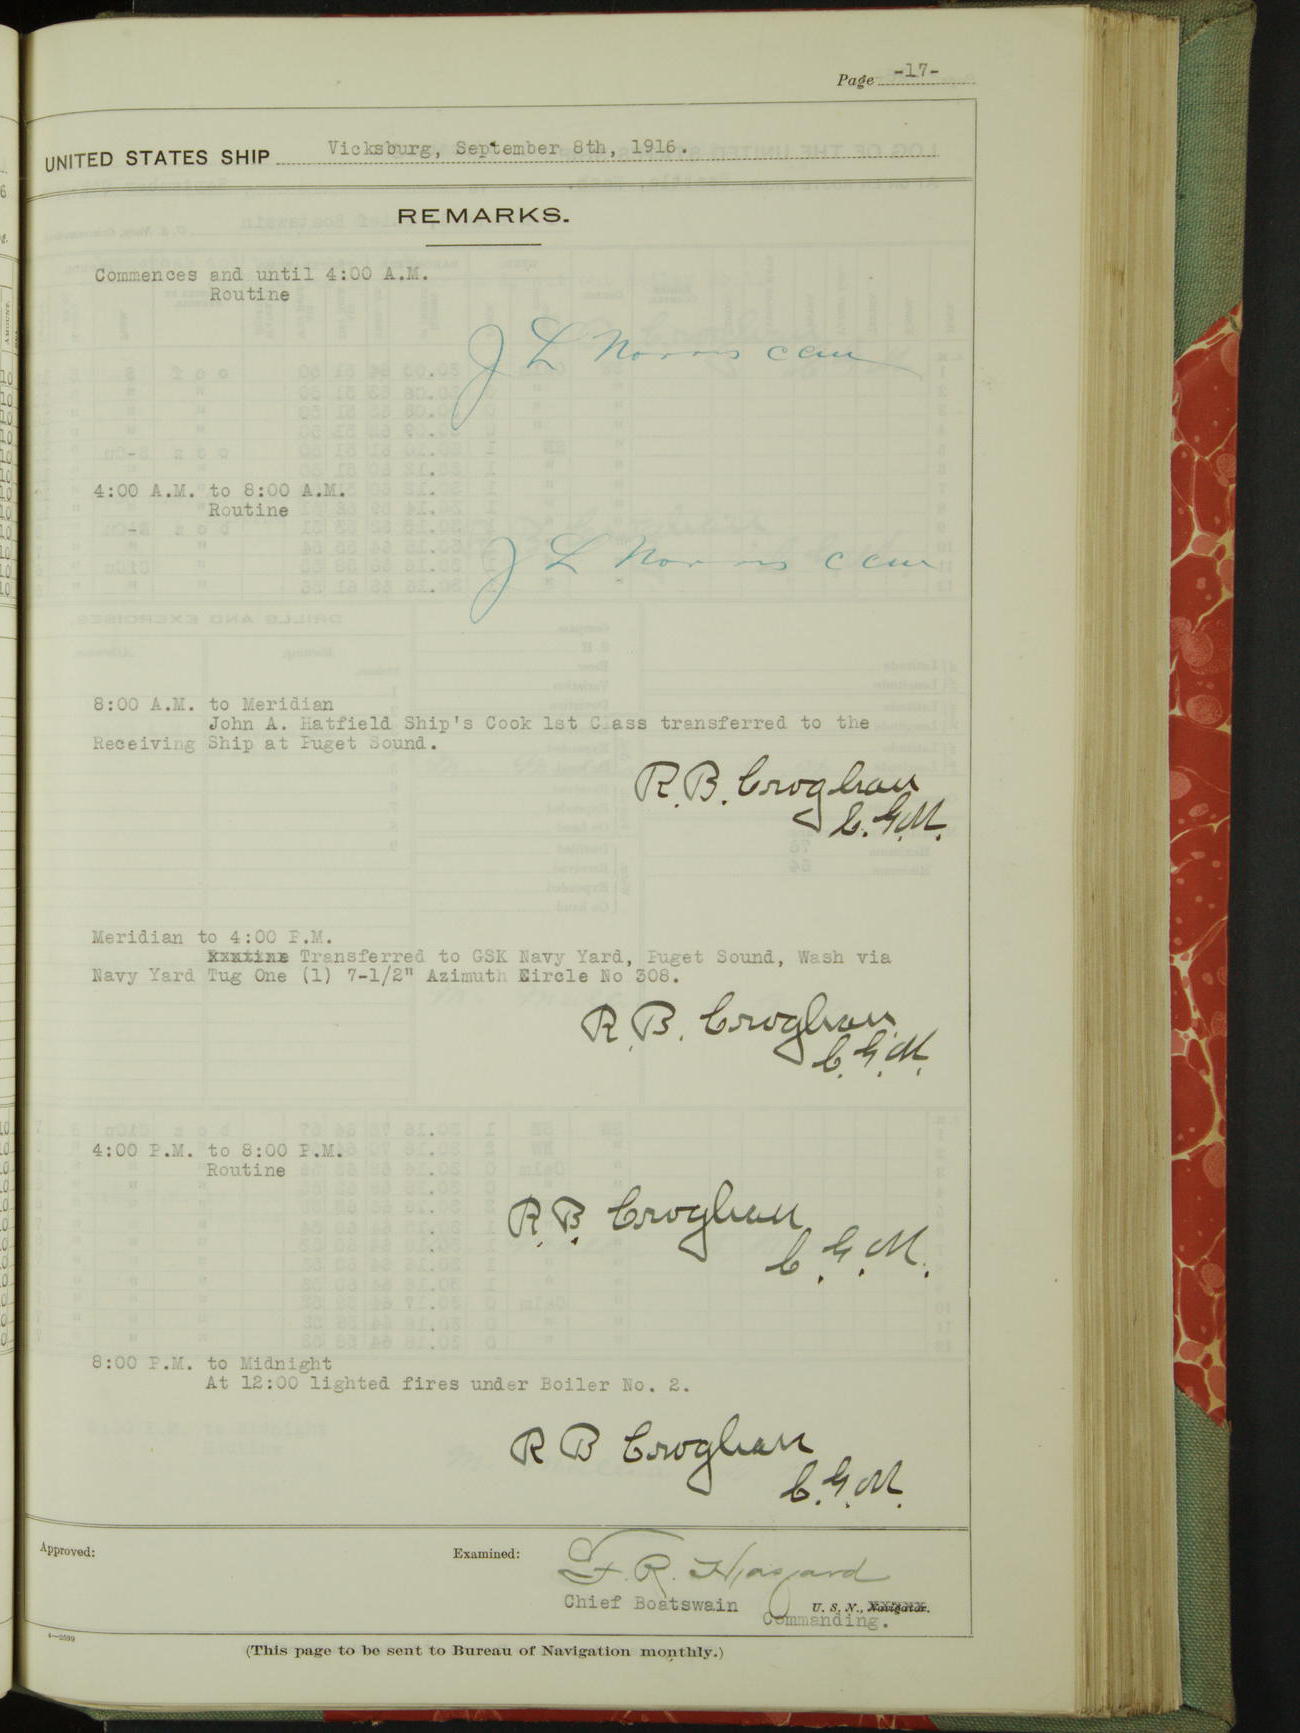 Page -17-
UNITED STATES SHIP Vicksburg, September 8th, 1916.
REMARKS.
Commences and until 4:00 A.M.
Routine
J L Norris
4:00 A.M. to 8:00 A.M.
Routine
J L Norris
8:00 A.M. to Meridian
John A. Hatfield Ship's Cook 1st Class transferred to the
Receiving Ship at Puget Sound.
R. B. Croghan
C. G. M.
Meridian to 4:00 P.M.
Transferred to GSK Navy Yard, Puget Sound, Wash via
Navy Yard Tug One (1) 7-1/2" Azimuth Circle No 308.
R. B. Croghan
C. G. M.
4:00 P.M. to 8:00 P.M.
Routine
R. B. Croghan
C. G. M.
8:00 P.M. to Midnight
At 12:00 lighted fires under Boiler No. 2.
R B Croghan
C. G. M.
Approved:
Examined:
F. R. Hazard
Chief Boatswain U. S. N., Navigator.
Commanding.
(This page to be sent to Bureau of Navigation monthly.)